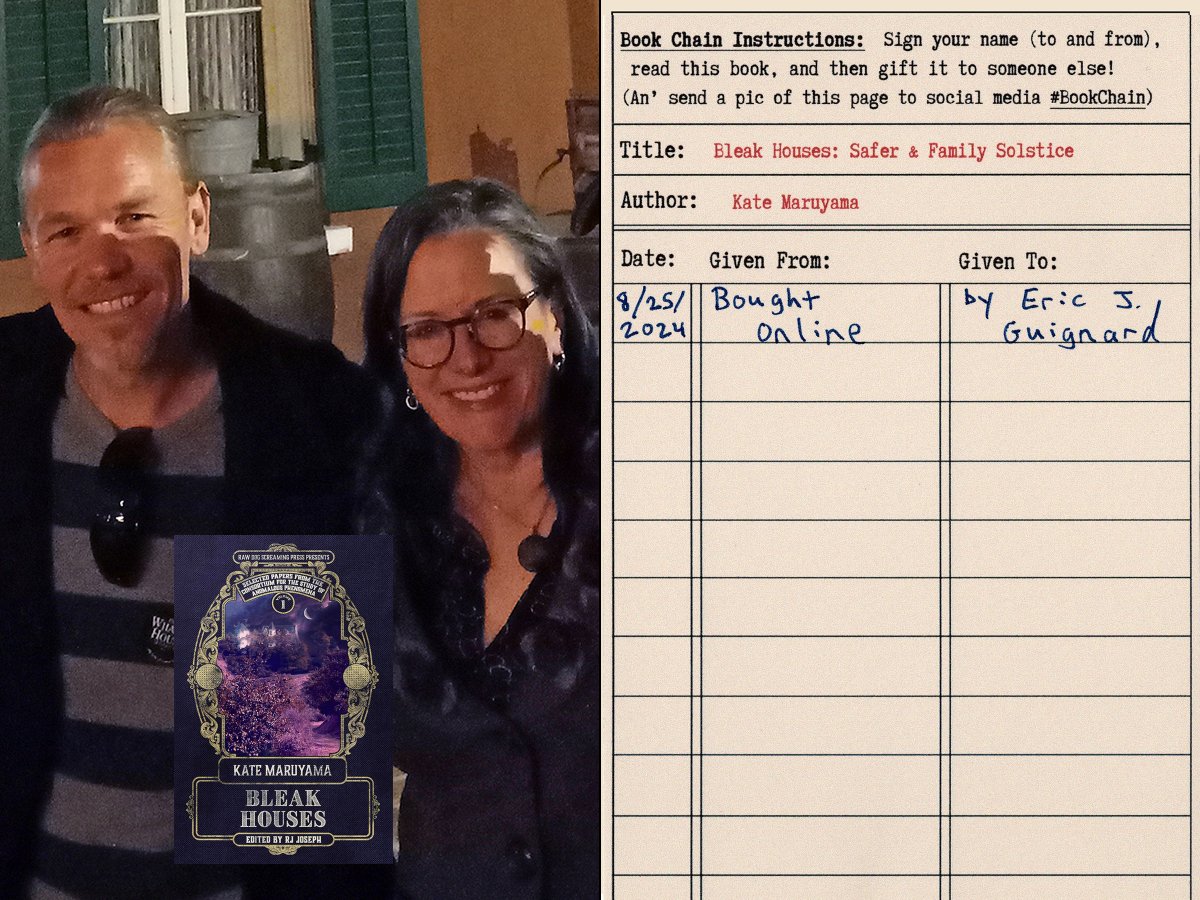 RAW DOG SCREAMING PRESS PRESENTS
SELECTED PAPERS FROM THE
CONSORTIUM FOR THE STUDY OF
ANOMALOUS PHENOMENA
1
KATE MARUYAMA
BLEAK
HOUSES
EDITED BY RJ JOSEPH
Book Chain Instructions: Sign your name (to and from),
read this book, and then gift it to someone else!
(An' send a pic of this page to social media #BookChain)
Title: Bleak Houses: Safer & Family Solstice
Author: Kate Maruyama
Date: Given From: Given To:
8/25/ Bought by Eric J.
2024 Online Guignard